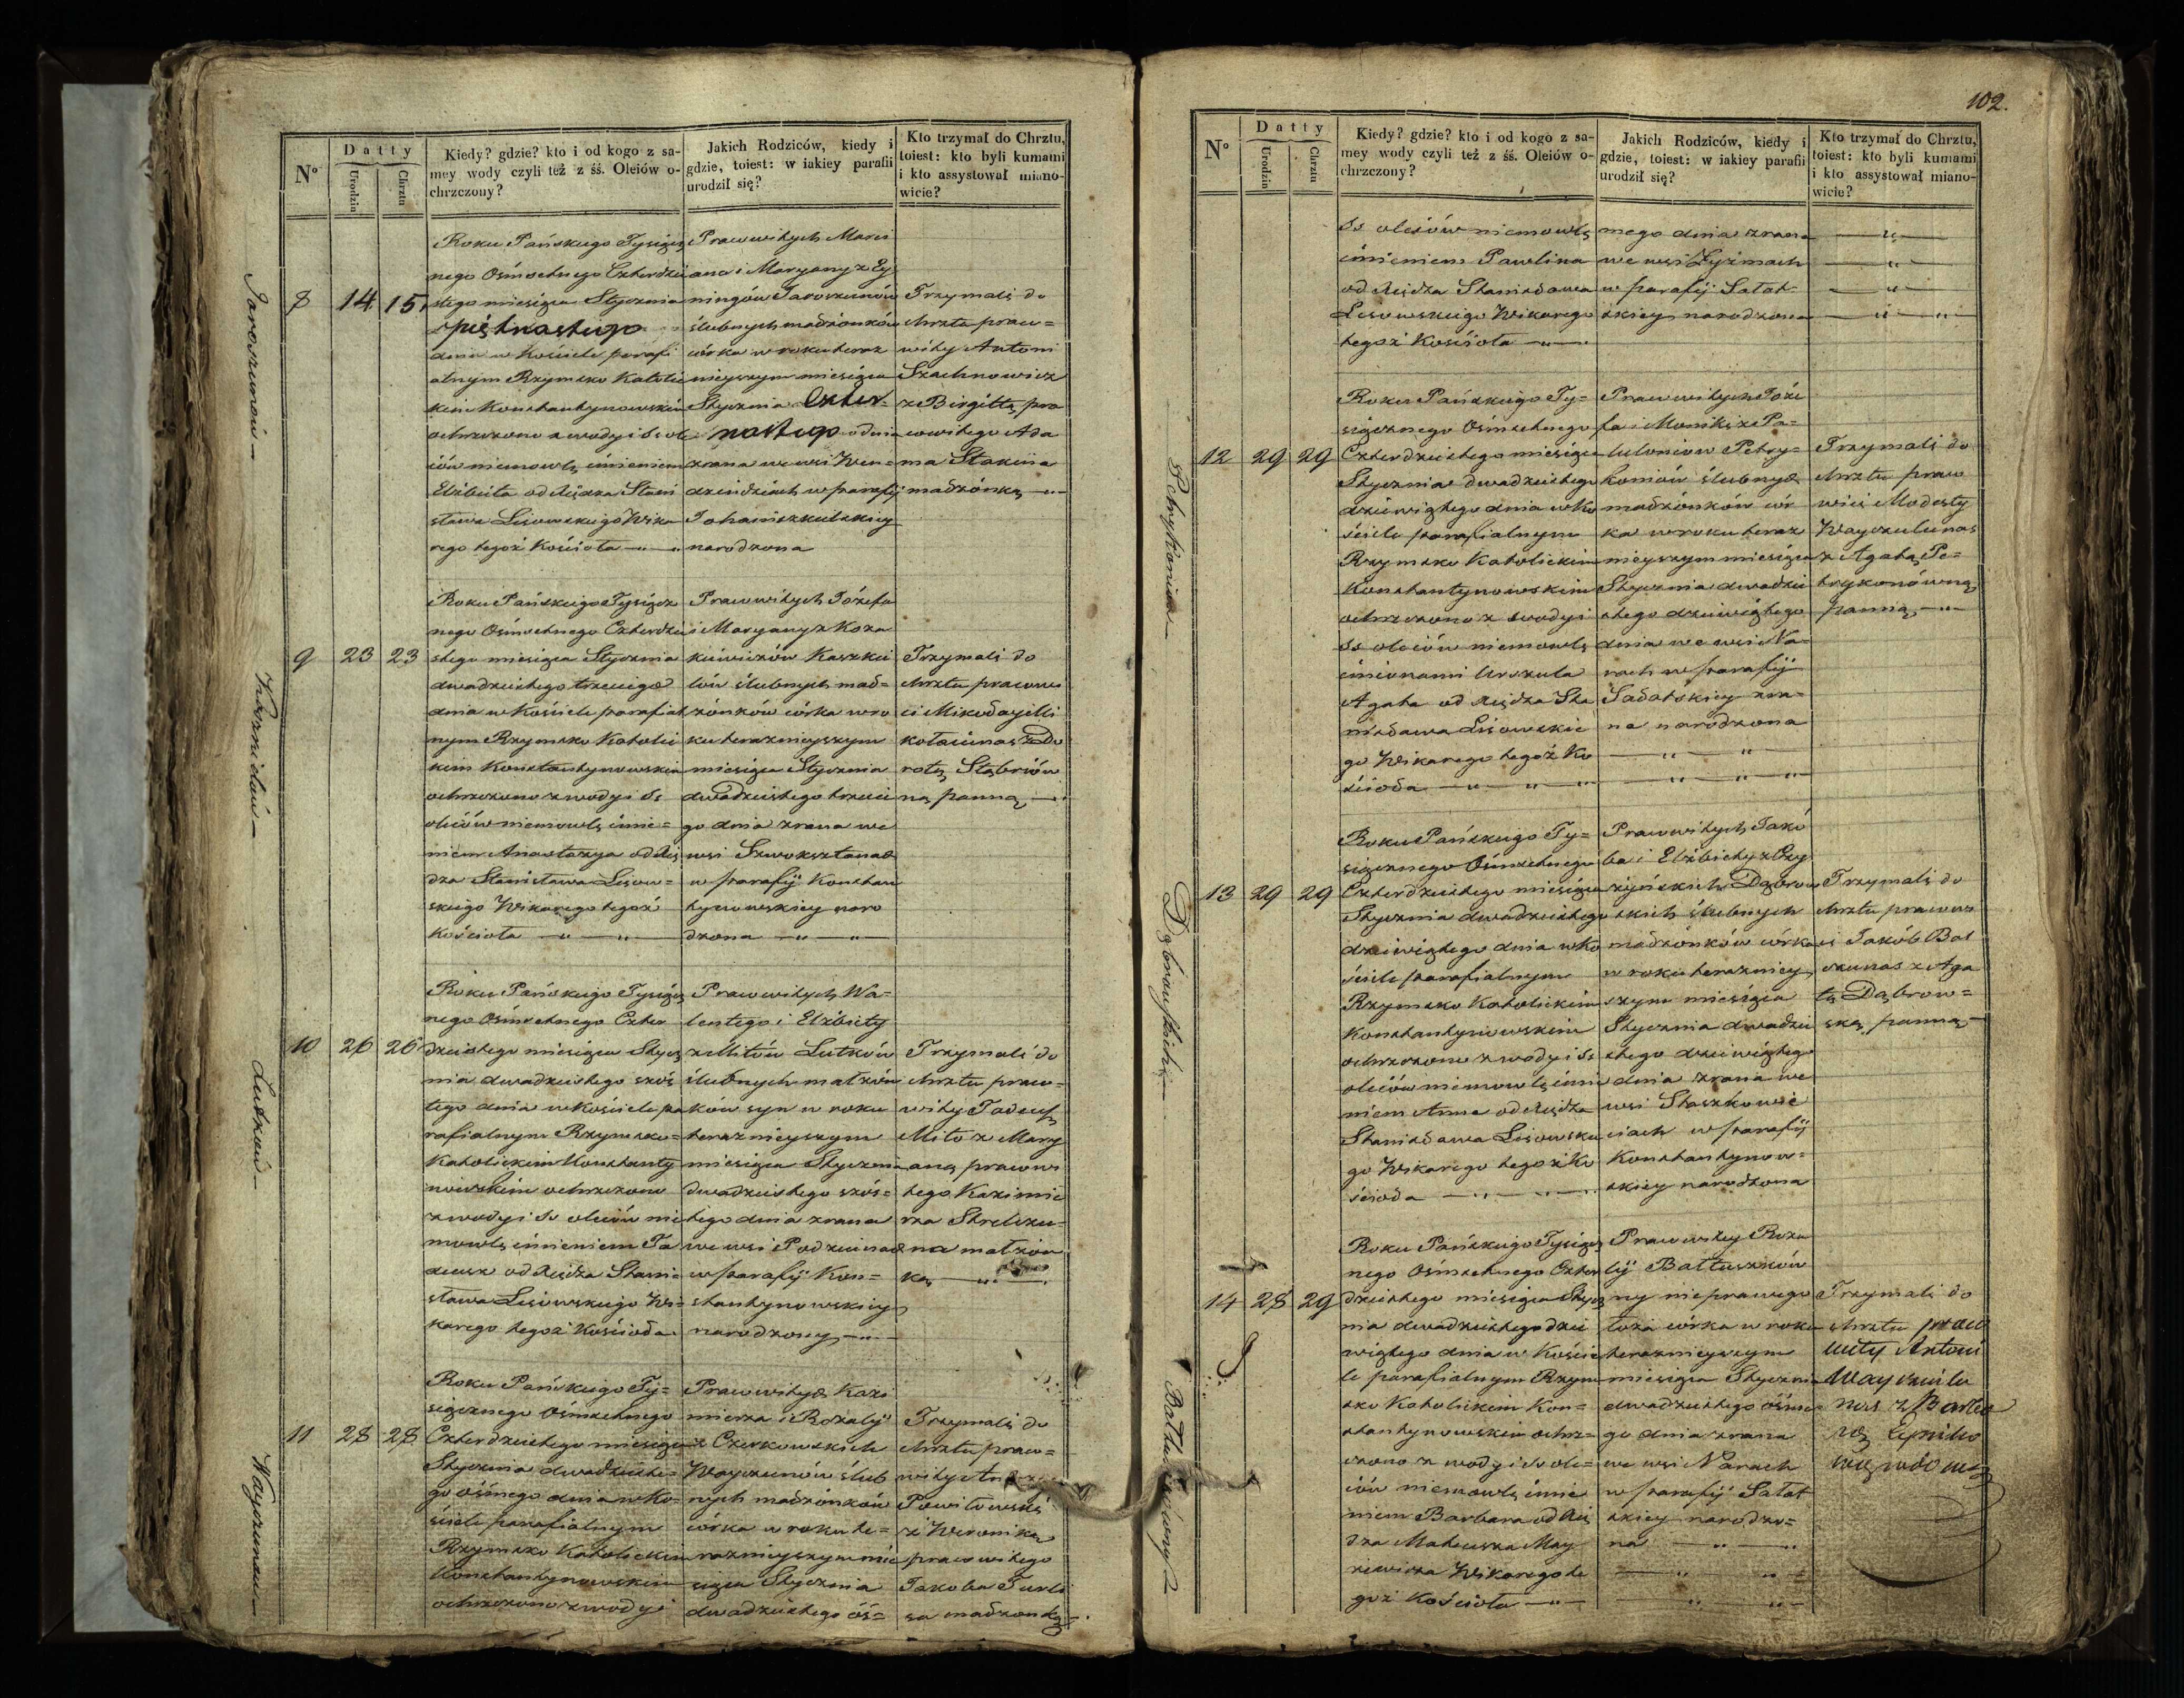 102.
Nº
Datty
Urodzin
Chrztu
Kiedy? gdzie? kto i od kogo z sa-
mey wody czyli też z śś. Oleiów o-
chrzczony?
Jakich Rodziców, kiedy i
gdzie, toiest: w iakiey parafii
urodził się?
Kto trzymał do Chrztu,
toiest: kto byli kumami
i kto assystował miano-
wicie?
8
14
15
Roku Pańskiego Tysiącz
nego Ośmsetnego Czterdzie
stego miesiąca Stycznia
piętnastego
dnia w Kościele parafi
alnym Rzymsko Katolic
kim Konstantynowskim
ochrzczono z wody i Ss ole
iów niemowlę imieniem
Elżbieta od Xiędza Stani
sława Lisowskiego Wika
rego tegoż Kościoła
Prawowitych Marci
ana i Maryany z Ey
ningów Jaroszunów
ślubnych małżonków
córka w roku teraz
nieyszym miesiąca
Stycznia Czter-
nastego dnia
zrana we wsi
w parafij
Johaniszkelskiey
narodzona
Trzymali do
chrztu praw=
wity Antoni
Szachnowicz
z Birgittą pra
wowitego Ada
ma Stakina
małżonką
9
23
23
Roku Pańskiego Tysiącz
nego Ośmsetnego Czterdzie
stego miesiąca Stycznia
dwadziestego trzeciego
dnia w Kościele parafial
nym Rzymsko Katolic
kim Konstantynowskim
ochrzczono z wody i Ss
oleiów niemowlę imie=
niem Anastazya od Xię
dza Stanisława Lisow=
skiego Wikarego tegoż
Kościoła
Prawowitych Józefa
i Maryany z Koza
kiewiczów
lów ślubnych mał=
żonków córka w ro
ku teraznieyszym
miesiąca Stycznia
dwadziestego trzecie
go dnia zrana we
wsi
w parafij Konstan
tynowskiey naro
dzona
Trzymali do
chrztu prawowi
ci Mikołay
z Do
rotą
ną panną
10
26
26
Roku Pańskiego Tysiącz
nego Ośmsetnego Czter
dziestego miesiąca Stycz
nia dwadziestego szós
tego dnia w Kościele pa
rafialnym Rzymsko=
Katolickim Konstanty
nowskim ochrzczono
z wody i Ss oleiów nie
mowlę imieniem Ta
deusz od Xiędza Stani=
sława Lisowskiego Wi=
karego tegoż Kościoła
Prawowitych Wa=
lentego i Elżbiety
z Mitów Lutków
ślubnych małżon
ków syn w roku
teraznieyszym
miesiąca Stycznia
dwadziestego szós=
tego dnia zrana
we wsi
w parafij Kon=
stantynowskiey
narodzony
Trzymali do
chrztu praw=
wity Tadeusz
Mito z Mary
aną prawowi
tego Kazimie
rza
na małżon
ką
11
28
28
Roku Pańskiego Ty=
siącznego Ośmsetnego
Czterdziestego miesiąca
Stycznia dwadzieste=
go ośmego dnia w Ko=
ściele parafialnym
Rzymsko Katolickim
Konstantynowskim
ochrzczono z wody i
Prawowitych Kazi
mierza i Rozalij
z Czerkowskich
Wayczunów ślub
nych małżonków
córka w roku te=
raznieyszym mie
siąca Stycznia
dwadziestego óś=
Trzymali do
chrztu praw=
wity
z Weroniką
prawowitego
Jakoba
sa małżonką
Ss oleiów niemowlę
imieniem Pawlina
od Xiędza Stanisława
Lisowskiego Wikarego
tegoż Kościoła
mego dnia zrana
we wsi Łyżmach
w parafij Sałat-
skiey narodzona
12
29
29
Roku Pańskiego Ty=
siącznego Ośmsetnego
Czterdziestego miesiąca
Stycznia dwadziestego
dziewiątego dnia w Ko
ściele parafialnym
Rzymsko Katolickim
Konstantynowskim
ochrzczono z wody i
Ss oleiów niemowlę
imionami Urszula
Agata od Xiędza Sta
nisława Lisowskie
go Wikarego tegoż Ko
ścioła
Prawowitych Józe
fa i Moniki z Pa=
luloniow Petry=
koniów ślubnych
małżonków cór
ka w roku teraz
nieyszym miesiąca
Stycznia dwadzie
stego dziewiątego
dnia we wsi Na=
rach w parafij
Sałatskiey zra=
na narodzona
Trzymali do
chrztu prawo
wici Modesty
Wayczulunas
z Agatą Pe=
trykonówną
panną
13
29
29
Roku Pańskiego Ty=
siącznego Ośmsetnego
Czterdziestego miesiąca
Stycznia dwadziestego
dziewiątego dnia w Ko
ściele parafialnym
Rzymsko Katolickim
Konstantynowskim
ochrzczono z wody i Ss
oleiów niemowlę imie
niem Anna od Xiędza
Stanisława Lisowskie
go Wikarego tegoż Ko
ścioła
Prawowitych Jakó
ba i Elżbiety z
Dąbrow
skich ślubnych
małżonków córka
w roku terazniey
szym miesiąca
Stycznia dwadzie
stego dziewiątego
dnia zrana we
wsi Staszkowie
ciach w parafij
Konstantynow=
skiey narodzona
Trzymali do
chrztu prawowi
ci Jakób Bał
czunas z Aga
tą Dąbrow=
ską panną
14
28
29
Roku Pańskiego Tysiącz
nego Ośmsetnego Czter
dziestego miesiąca Stycz
nia dwadziestego dzie
wiątego dnia w Koście
le parafialnym Rzym
sko Katolickim Kon=
stantynowskim ochrz=
czono z wody i Ss ole=
iów niemowlę imie
niem Barbara od Xię
dza Mateusza May
Wikarego te
goż Kościoła
Prawowitey Roza
lij Bałtuszków
ny nieprawego
łoża córka w roku
teraznieyszym
miesiąca Stycznia
dwadziestego ósme
go dnia zrana
we wsi Narach
w parafij Sałat
skiey narodzo=
na
Trzymali do
chrztu prawo
wity Antoni
Wayczulu
nas z Barba
rą
wdową
Jaroszunow
Lutków
Wayczunow
Petrykoniow
Dąbrowskich